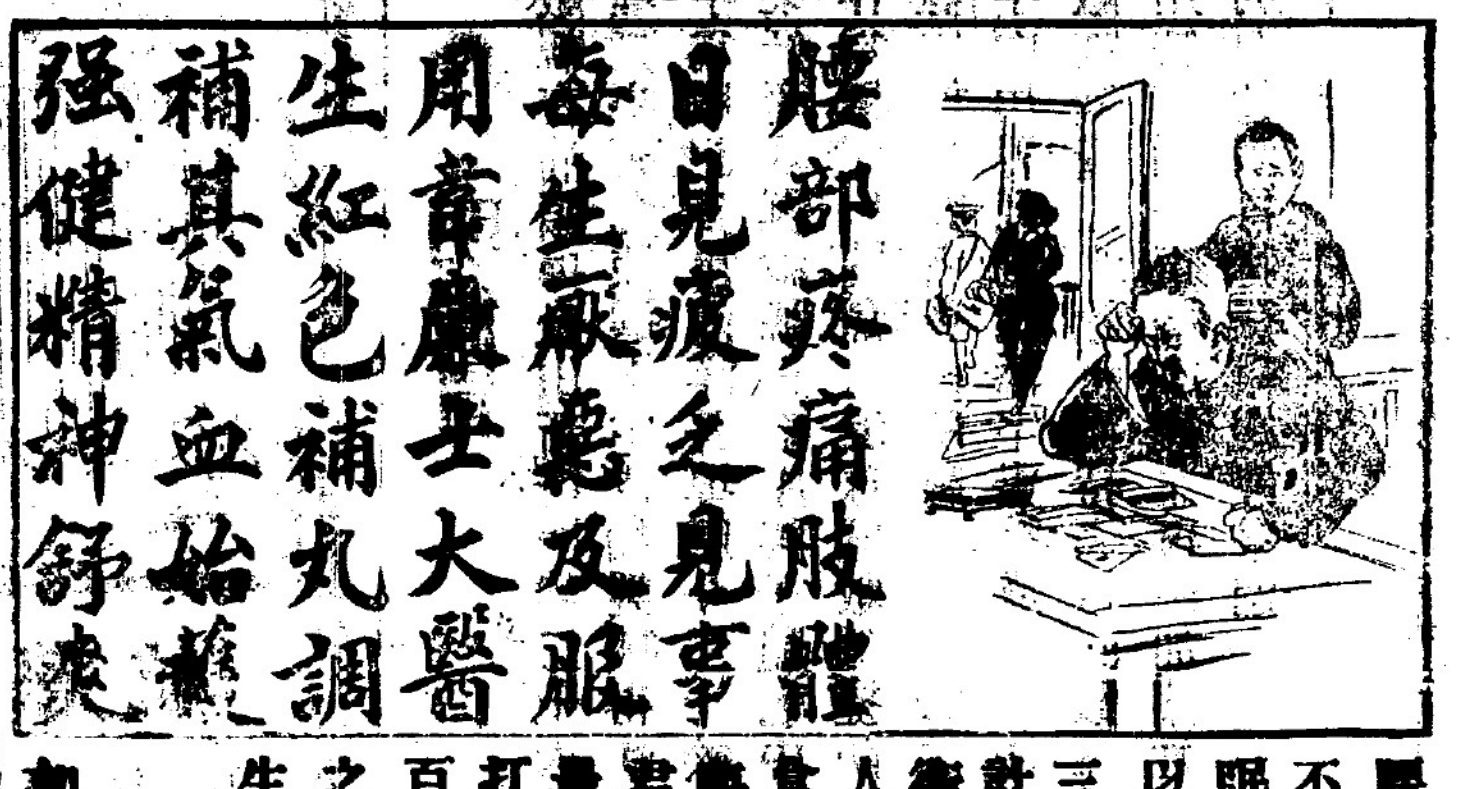 腰部疼痛肢體
日見疲乏見事
每生厭惡及服
用韋廉士大醫
生紅色補丸調
補其氣血始獲
强健精神舒爽